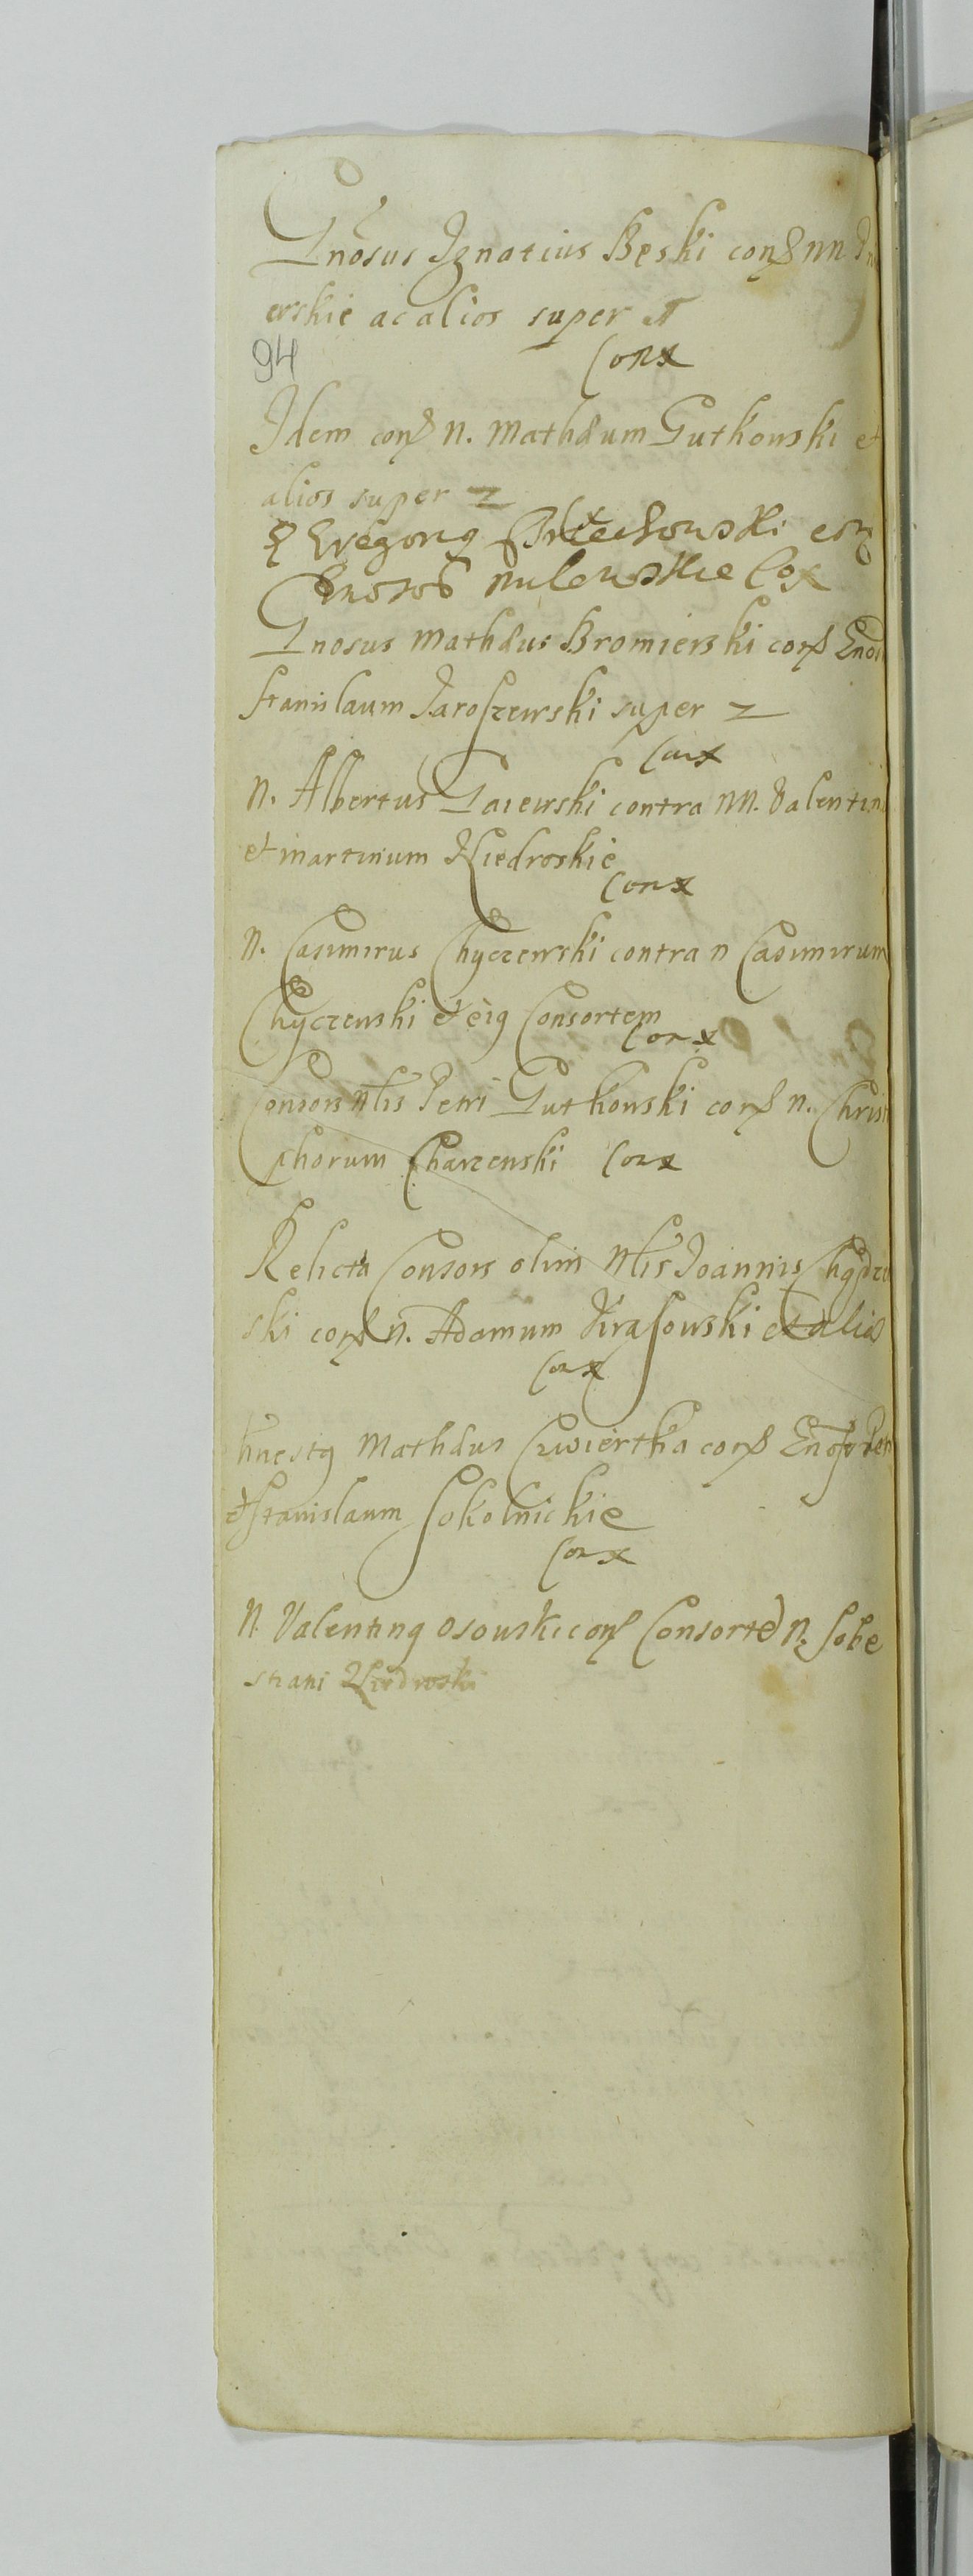 Gnosus Ignatius Bęski conß NN
erskie ac alios super
94
Conx
Idem conß N. Mathæum Gutkowski et
alios super 2
Gregorius
Gnosos Milewskie Cox
Gnosus Mathæus Bromierski conß Gnos
Stanislaum Jaroszewski super 2
Conx
N. Albertus Gaiewski contra NN. Valentin
et Martinum Kiedroskie
Conx
N. Casimirus Chyczewski contra N Casimirum
Chyczewski et eiq Consortem
Conx
Consors Nlis Petri Gutkowski conß N. Christ
phorum Charzewski Conx
Relicta Consors olim Nlis Joannis
ski conß N. Adamum Krasowski et alios
Conx
Hnestq Mathæus Czwiertka conß Gnos Petr
et Stanislaum Sokolnickie
Conx
N. Valentinq Osowski conß Consorte N. Sobe
stiani Kiedroski